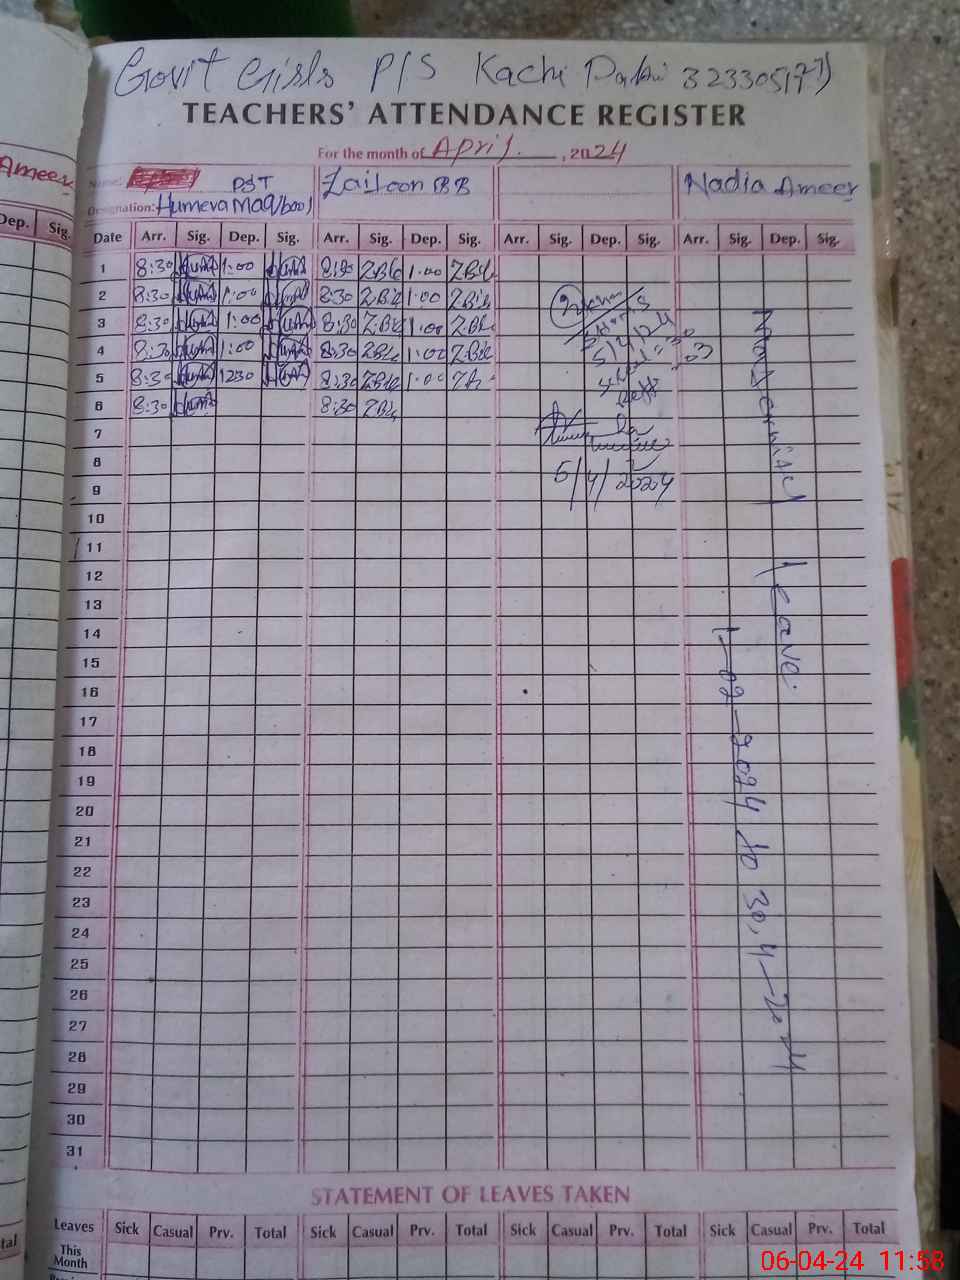 Govt Girls P/S Kachi Pakri 323305177)
TEACHERS' ATTENDANCE REGISTER
For the month of April, 2024
Ameer
Name: PST Zaitoon BB Nadia Ameer
Designation: Humera Maqbool
Dep. Sig.
Date Arr. Sig. Dep. Sig. Arr. Sig. Dep. Sig. Arr. Sig. Dep. Sig. Arr. Sig. Dep. Sig.
1 8:30 1:00 8:30 1:00
2 8:30 1:00 8:30 1:00
3 8:30 1:00 8:30 1:00
4 8:30 1:00 8:30 1:00
5 8:30 1230 8:30 1:00
6 8:30 8:30
7
8
9
10
11
12
13
14
15
16
17
18
19
20
21
22
23
24
25
26
27
28
29
30
31
5/4/24
5/4/2024
leave.
1-02-2024 to 30,4-2024
STATEMENT OF LEAVES TAKEN
Leaves Sick Casual Prv. Total Sick Casual Prv. Total Sick Casual Prv. Total Sick Casual Prv. Total
This
Month
tal
06-04-24 11:58